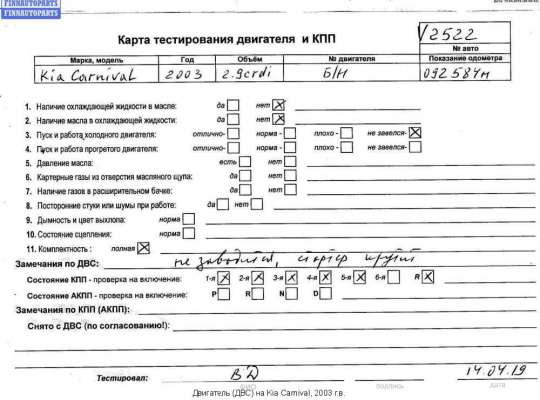 FINNAUTOPARTS
FINNAUTOPARTS
Карта тестирования двигателя и КПП
√2522
№ авто
Марка, модель Год Объём № двигателя Показание одометра
Kia Carnival 2003 2.9crdi Б/Н 092584м
1. Наличие охлаждающей жидкости в масле: да нет X
2. Наличие масла в охлаждающей жидкости: да нет X
3. Пуск и работа холодного двигателя: отлично- норма - плохо - не завелся- X
4. Пуск и работа прогретого двигателя: отлично- норма- плохо - не завелся-
5. Давление масла: есть нет
6. Картерные газы из отверстия масляного щупа: да нет
7. Наличие газов в расширительном бачке: да нет
8. Посторонние стуки или шумы при работе: да нет
9. Дымность и цвет выхлопа: норма
10. Состояние сцепления: норма
11. Комплектность : полная X
Замечания по ДВС: не заводится, стартер крутит
Состояние КПП - проверка на включение: 1-я X 2-я X 3-я X 4-я X 5-я X 6-я R X
Состояние АКПП - проверка на включение: P R N D
Замечания по КПП (АКПП):
Снято с ДВС (по согласованию!):
Тестировал: ВД 14.04.19
ФИО подпись дата
Двигатель (ДВС) на Kia Carnival, 2003 г.в.